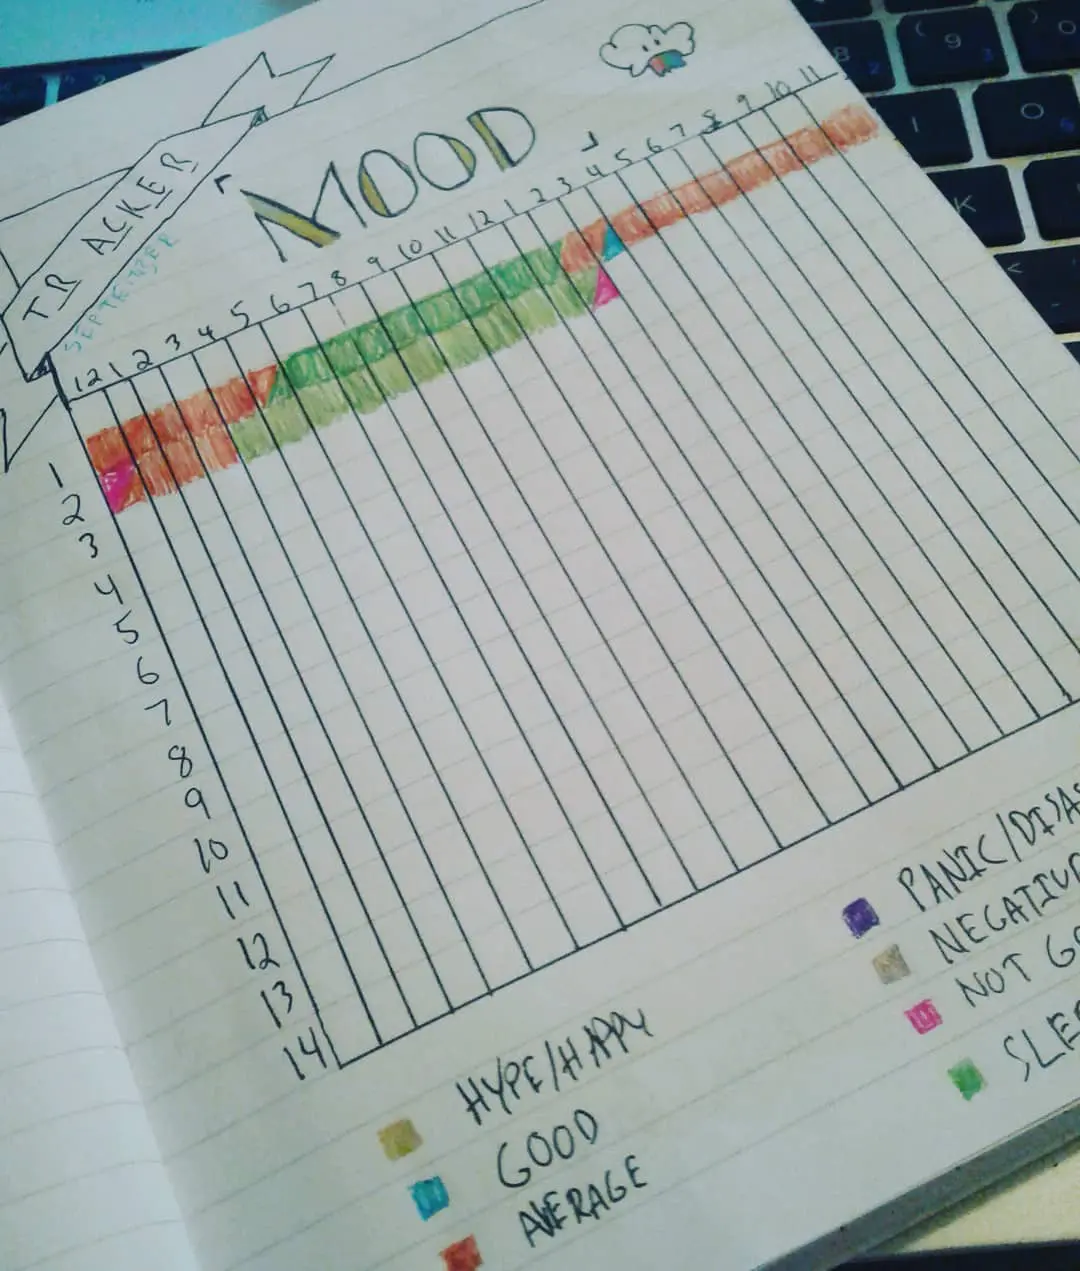 TRACKER
SEPTEMBER
MOOD
12 1 2 3 4 5 6 7 8 9 10 11 12 1 2 3 4 5 6 7 8 9 10 11
1
2
3
4
5
6
7
8
9
10
11
12
13
14
HYPE/HAPPY
GOOD
AVERAGE
PANIC/DISAS
NEGATIV
NOT GO
SLEE
8
9
O
I
K